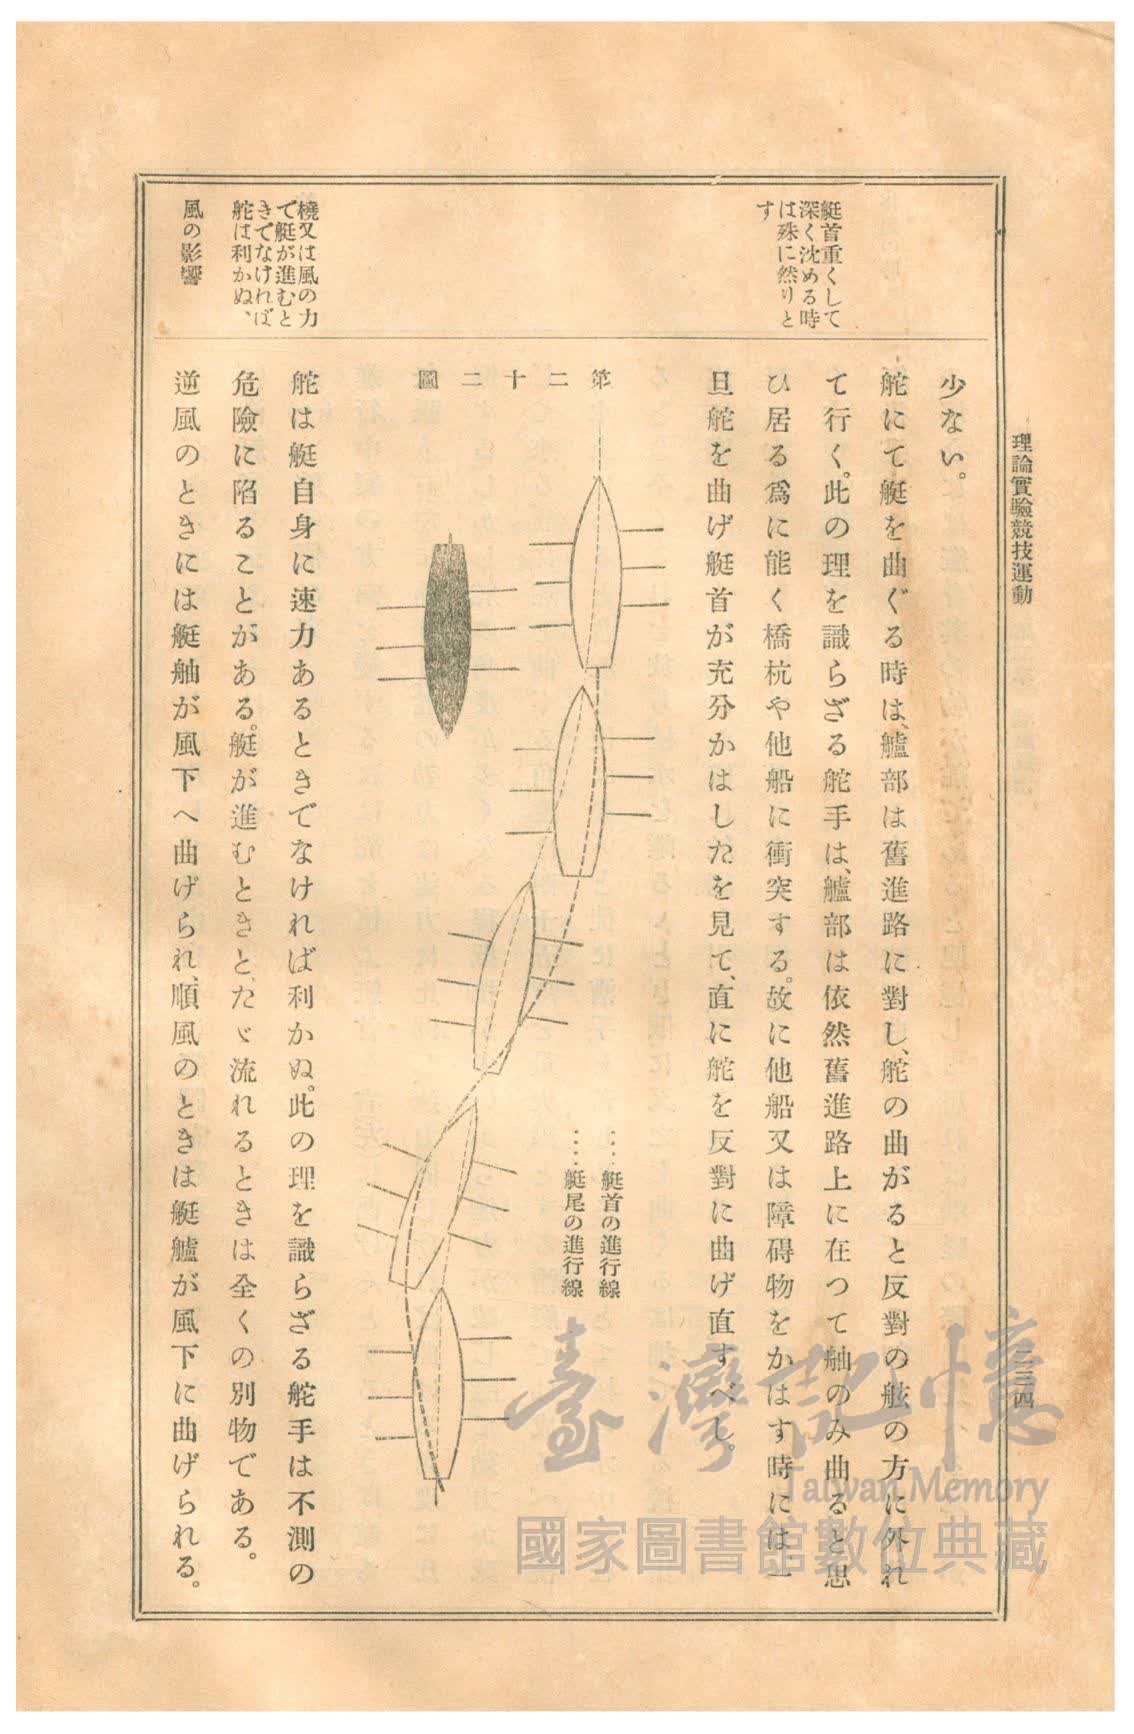 理論實驗競技運動
二三四
艇首重くして
深く沈める時
は殊に然りと
す
橈又は風の力
で艇が進むと
きでなければ
舵は利かぬ、
風の影響
少ない。
舵にて艇を曲ぐる時は、艫部は舊進路に對し、舵の曲がると反對の舷の方に外れ
て行く。此の理を識らざる舵手は、艫部は依然舊進路上に在つて舳のみ曲ると思
ひ居る爲に能く橋杭や他船に衝突する。故に他船又は障碍物をかはす時には一
旦舵を曲げ艇首が充分かはしたを見て、直に舵を反對に曲げ直すべし。
第二十二圖
‥‥艇首の進行線
‥‥艇尾の進行線
舵は艇自身に速力あるときでなければ利かぬ。此の理を識らざる舵手は不測の
危險に陷ることがある。艇が進むときと、たゞ流れるときは全くの別物である。
逆風のときには艇舳が風下へ曲げられ、順風のときは艇艫が風下に曲げられる。
臺灣記憶
Taiwan Memory
國家圖書館數位典藏